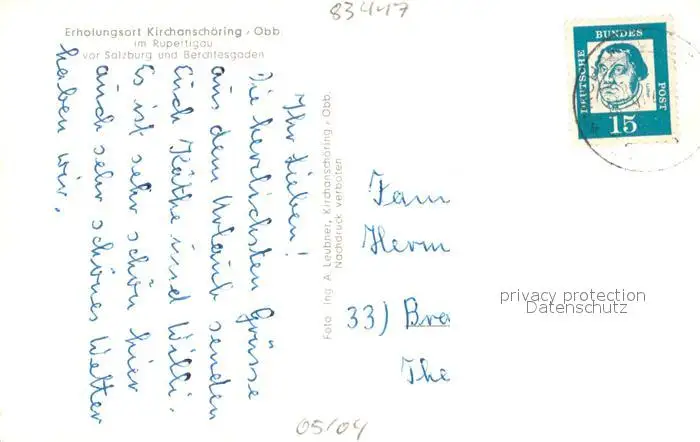 83417
Erholungsort Kirchanschöring, Obb.
im Rupertigau
vor Salzburg und Berchtesgaden
Ihr Lieben!
Die herzlichsten Grüsse
aus dem Urlaub senden
Euch Käthe und Willi.
Es ist sehr schön hier
auch sehr schönes Wetter
haben wir.
Foto Ing A. Leubner, Kirchanschöring, Obb.
Nachdruck verboten
DEUTSCHE BUNDES POST
Luther
15
Fam
Herm
33) Bra
The
privacy protection
Datenschutz
05/04